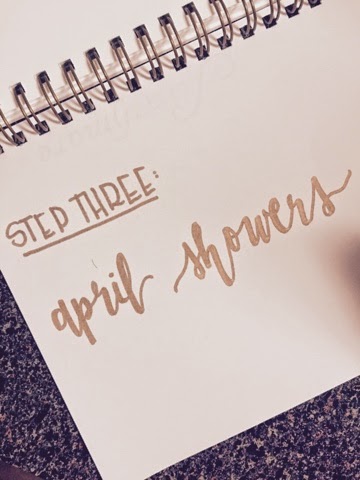 STEP THREE:
april showers